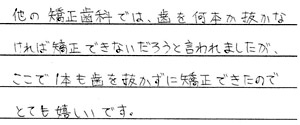 他の矯正歯科では、歯を何本か抜かな
ければ矯正できないだろうと言われましたが、
ここで1本も歯を抜かずに矯正できたので
とても嬉しいです。